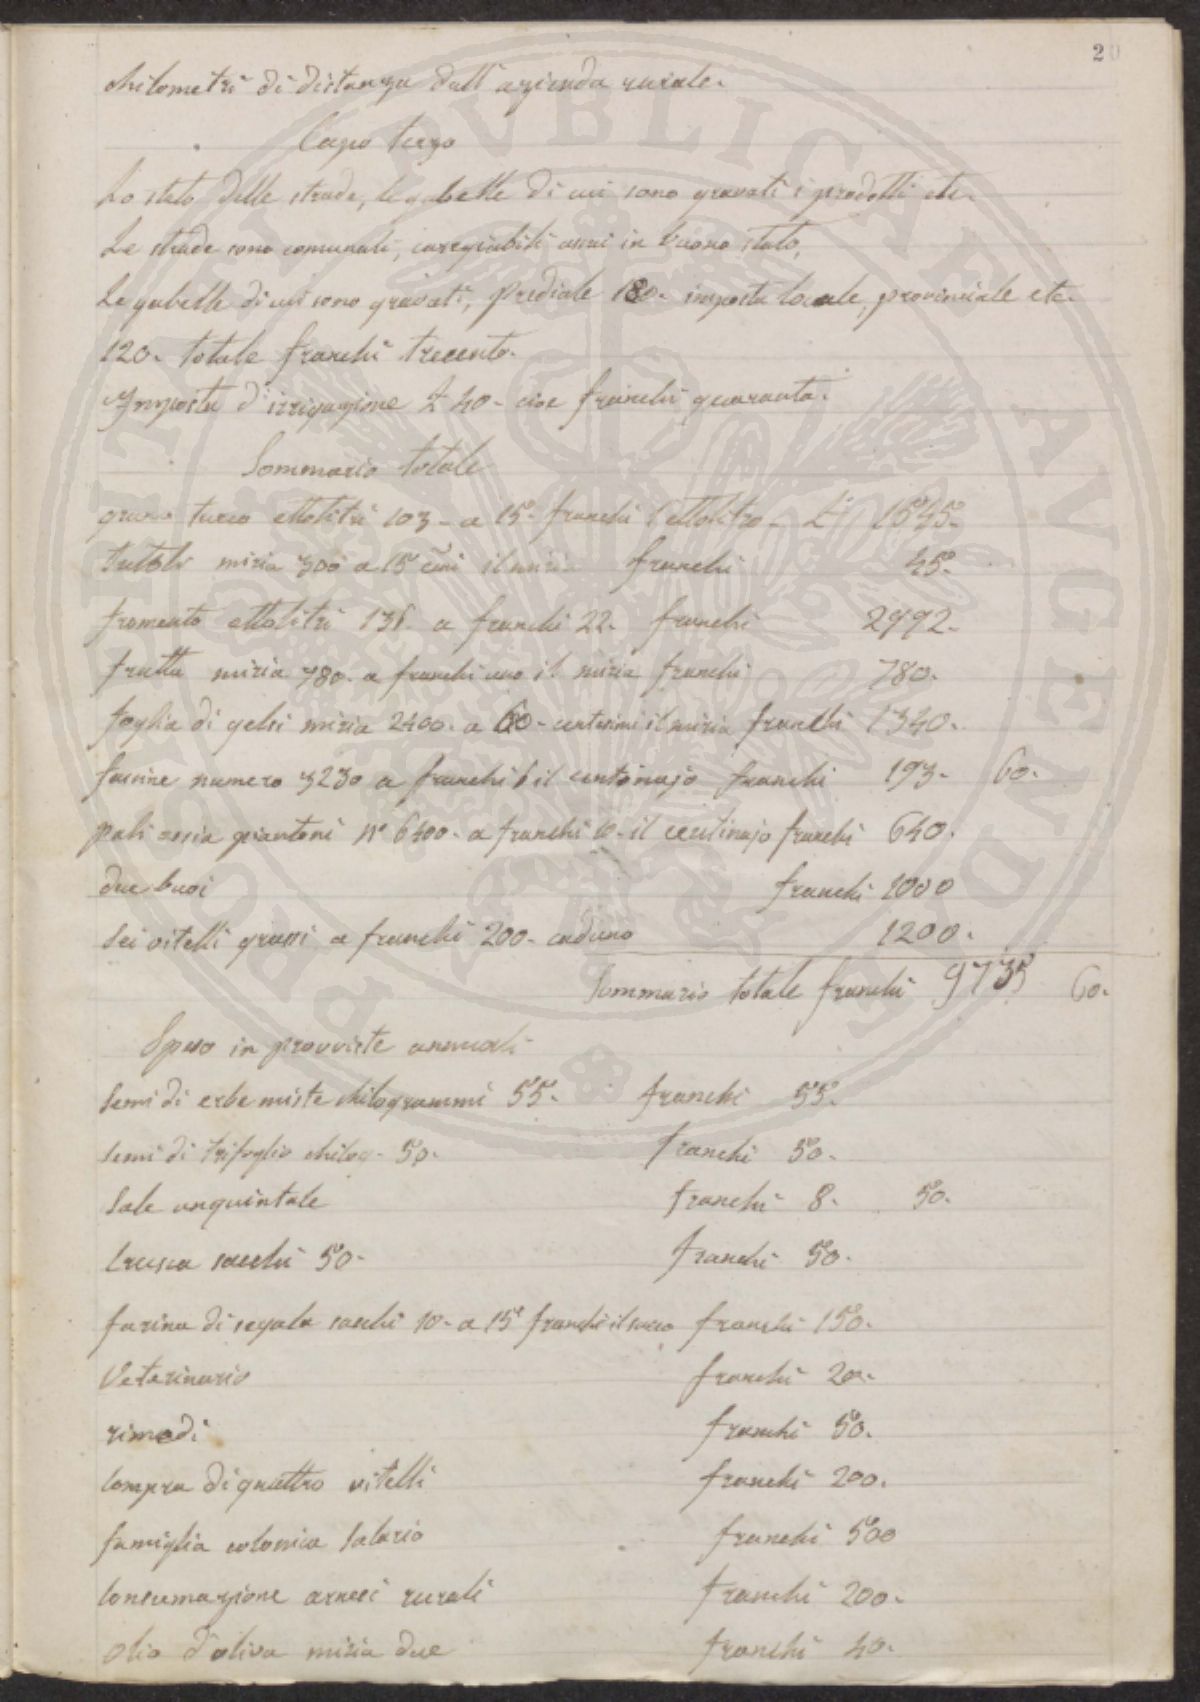 20
chilometri di distanza dall'azienda rurale.
Capo terzo
Lo stato delle strade, le gabelle di cui sono gravati i prodotti etc.
Le strade sono comunali, carregiabili assai in buono stato,
Le gabelle di cui sono gravati, prediale 180. imposta locale, provinciale etc.
120. totale franchi trecento.
Imposta d'irrigazione £ 40 - cioe franchi quaranta.
Sommario totale
grano turco ettolitri 103 - a 15. franchi l'ettolitro - £ 1545.
tutoli miria 300 a 15 cmi il miria franchi 45.
fromento ettolitri 136. a franchi 22. franchi 2992.
frutta miria 780. a franchi uno il miria franchi 780.
foglia di gelsi miria 2400. a 60 - centesimi il miria franchi 1340.
fascine numero 3230 a franchi 6 il centinajo franchi 193. 60.
pali ossia piantoni N° 6400. a franchi 10. il centinajo franchi 640.
due buoi franchi 1000
Sei vitelli grassi a franchi 200. caduno 1200.
Sommario totale franchi 9735 60.
Spese in provviste annuali
Semi di erbe miste chilogrammi 55. franchi 55.
Semi di trifoglio chilog. 50. franchi 50.
Sale un quintale franchi 8. 50.
Crusca sacchi 50. franchi 50.
farina di segala sacchi 10. a 15 franchi il sacco franchi 150.
Veterinario franchi 20.
rimedi franchi 50.
Compra di quattro vitelli franchi 200.
famiglia colonica Salario franchi 500
Consumazione arnesi rurali franchi 200.
Olio d'oliva miria due franchi 40.